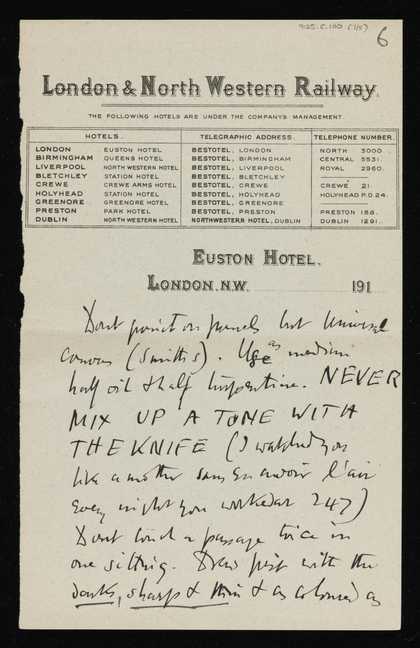 925.C.100 (1/5)
6
London & North Western Railway.
THE FOLLOWING HOTELS ARE UNDER THE COMPANY'S MANAGEMENT
HOTELS. TELEGRAPHIC ADDRESS. TELEPHONE NUMBER.
LONDON EUSTON HOTEL BESTOTEL, LONDON NORTH 3000.
BIRMINGHAM QUEENS HOTEL BESTOTEL, BIRMINGHAM CENTRAL 5531.
LIVERPOOL NORTH WESTERN HOTEL BESTOTEL, LIVERPOOL ROYAL 2960.
BLETCHLEY STATION HOTEL BESTOTEL, BLETCHLEY
CREWE CREWE ARMS HOTEL BESTOTEL, CREWE CREWE 21
HOLYHEAD STATION HOTEL BESTOTEL, HOLYHEAD HOLYHEAD P.O.24.
GREENORE GREENORE HOTEL BESTOTEL, GREENORE
PRESTON PARK HOTEL BESTOTEL, PRESTON PRESTON 188.
DUBLIN NORTH WESTERN HOTEL NORTHWESTERN HOTEL, DUBLIN DUBLIN 1291.
EUSTON HOTEL.
LONDON. N.W. 191
Dont paint on panels but Universal
canvas (Smiths). Use as medium
half oil & half turpentine. NEVER
MIX UP A TONE WITH
THE KNIFE (I watched you
like a mother sans en avoir l'air
every night you worked at 247)
Dont touch a passage twice in
one sitting. Draw first with the
darks, sharp & thin & as coloured as